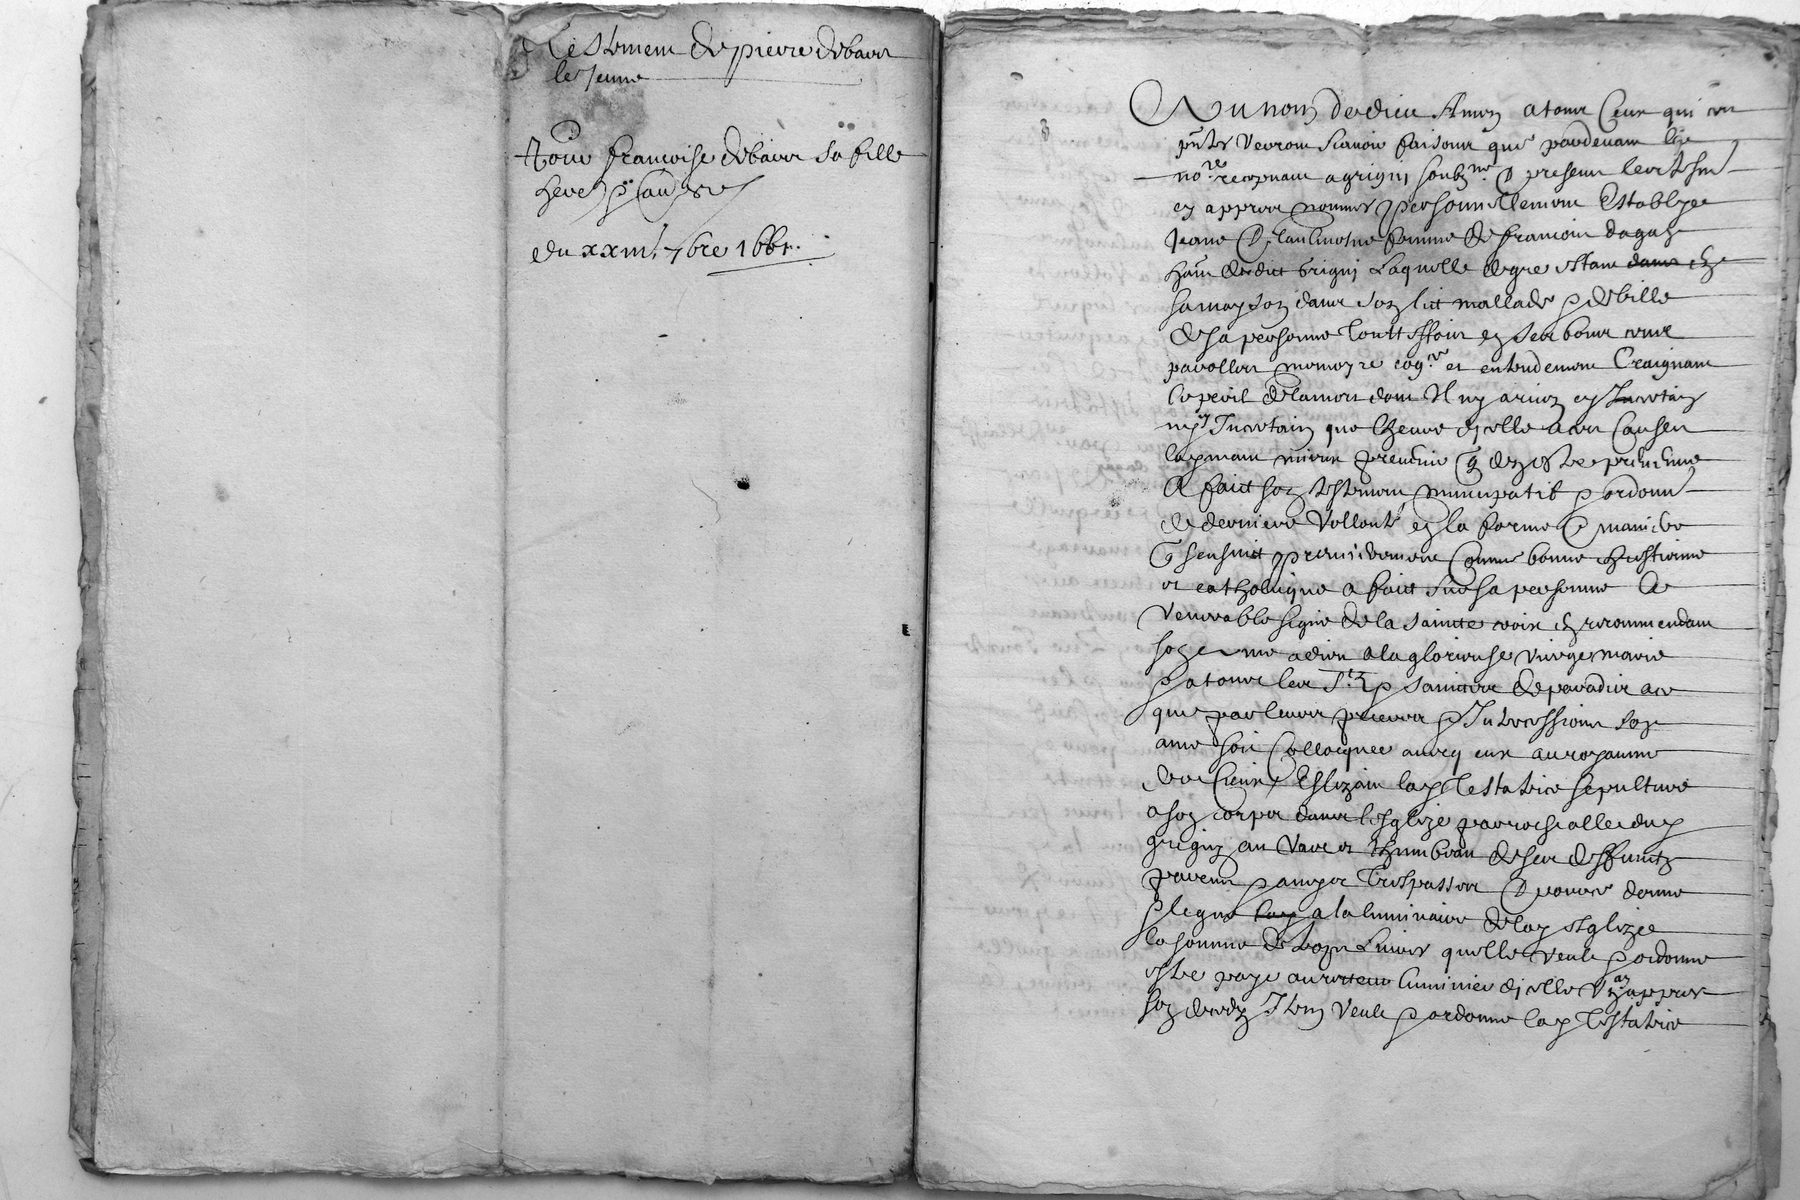 Testament de pierre debaux
le Jeune
Pour francoise debaux sa fille
du xxiiii. 7bre 1661.
Au nom de dieu Amen a tous Ceux qui ces
pntes verront scavoir faisons que pardevant le
no.re royal a grigni soubzne & presens les tesm
en appres nommes personnellement Establye
Jeane femme de francois
hant dudict Grigni Laquelle de gre estant dans
sa mayson dans son lict mallade & debille
de sa personne touttesffois en ses bons sens
parolles memoyre cogce et entendement Craignant
le peril de la mort dont Il ny a rien en plus certain
ny Incertain que lheure dycelle a ces Causes
lad. mieux prevenir que destre prevenue
A faict son testement nuncupatif & ordonn
de derniere vollonté en la forme & maniere
que sensuict premierement Comme bonne chrestienne
et catholique a faict sur sa personne le
venerable signe de la saincte croix recommendant
son ame a dieu a la glorieuse vierge marie
& a tous les Stz & sainctes de paradis a ce
que par leurs prieres & Intercessions son
ame soit Collocquee avecq eux au royaume
des Cieux Eslizant lad. Testatrice sepulture
a son corps dans lesglize parrochialle dud.
grigny au vas et thumbeau de ses deffunctz
parens & amys Trespasses & donne
& legue a la luminaire de lad. esglize
la somme de Livres quelle veult & ordonne
estre paye au luminier dycelle appres
son deces Item veult & ordonne lad. testatrice